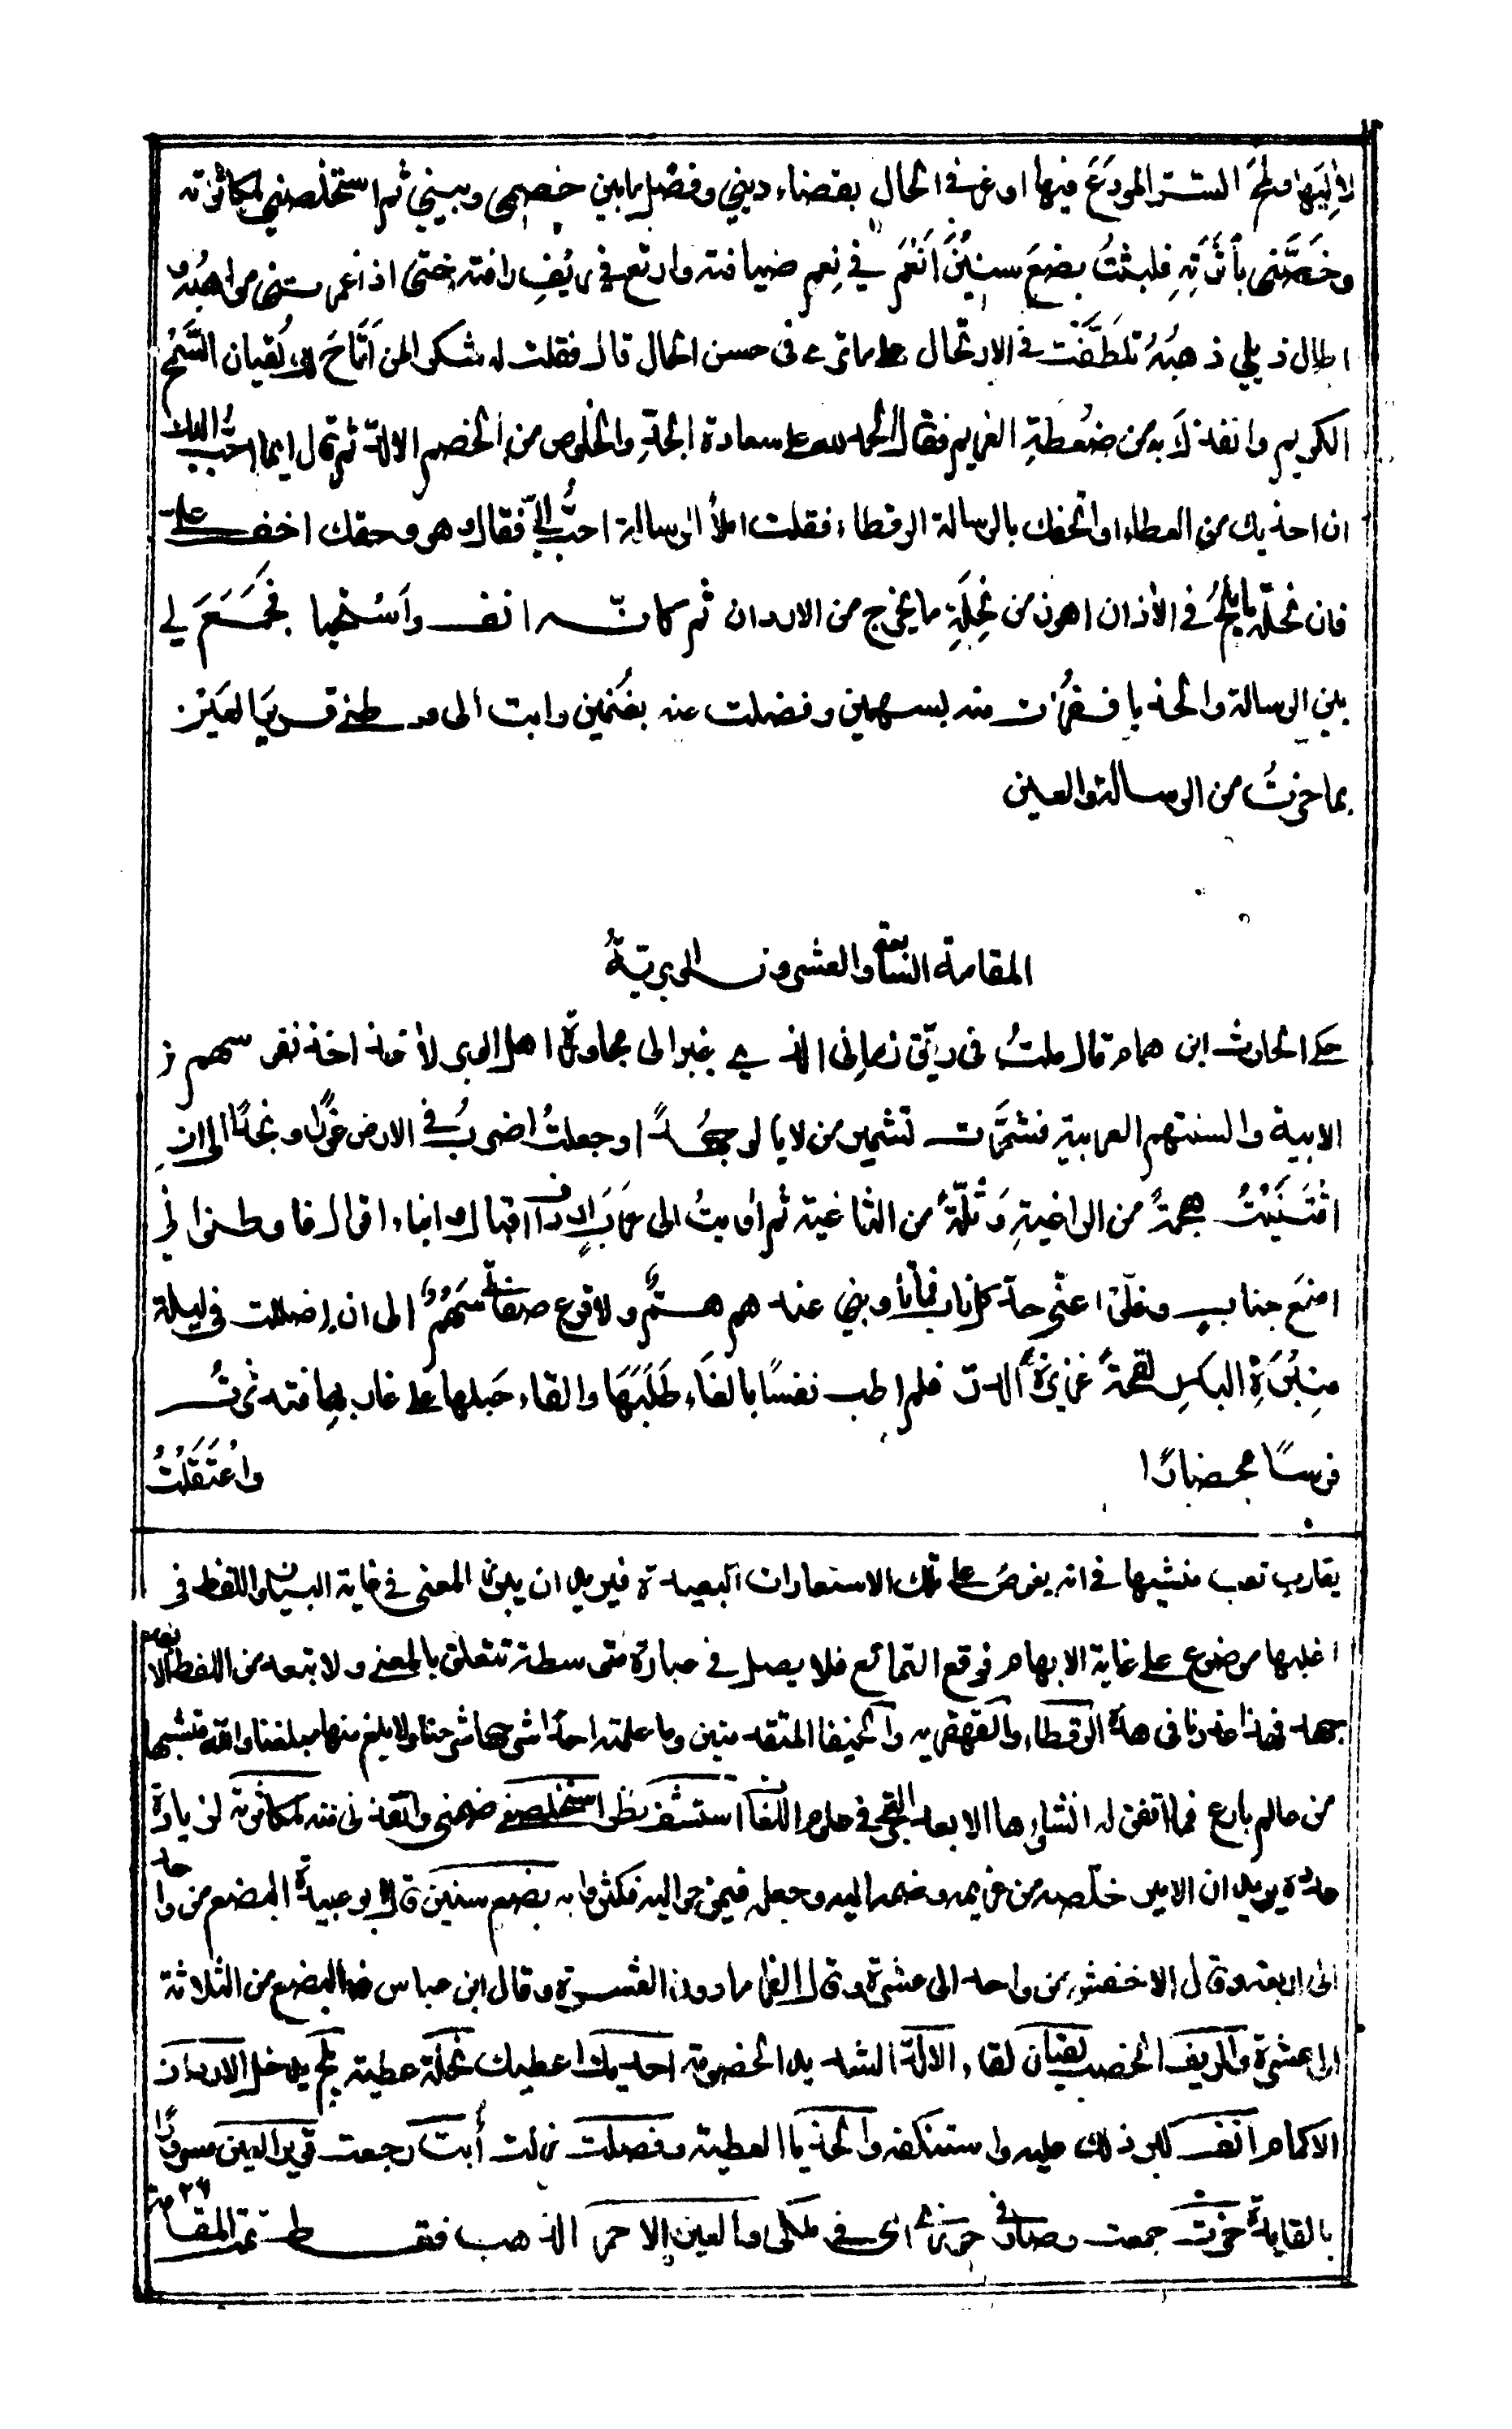 لآليها ولمح السر المودع فيها اوعز في الحال بقضاء ديني وفصل ما بين خصمي وبيني ثم استخلصني لمكاثرته
وخصّني بأثرتهِ فلبثتُ بضع سنينَ اَنْعَم في نِعم ضيافته وارتع في ريف رافته حتى اذا غمرتني مواهبُه و
اطال ذيلي ذهبُهُ تلطّفت في الارتحال على ما ترى في حسن الحال قال فقلت له شكر المن اَتاحَ لك لُقيان السَّمْح
الكريم وانقذك به من ضُغطةِ الغريم فقال الحمد لله على سعادة الجَدِّ والخلوص من الخصم الالدّ ثم قال ايما احبّ اليك
ان احذيك من العطاء او اتحفك بالرسالة الرقطاء فقلت املاُ الرسالة احبُّ اليّ فقال وهو وحقك اخف علىّ
فان نحلة ما يلج في الأذان اهون من نِحلَةِ ما يخرج من الاردان ثم كانّه انف واستحيا فجَمَعَ لي
بين الرسالة والحذيا ففزت منه بسهمين وفصلت عنه بغُنمين وابت الى وطني قرير العين
بما حزتُ من الرسالة والعين
المقامة السابعة والعشرون الوبريّةُ
حكى الحارث ابن همام قال ملتُ في ريّق زماني الذي غبر الى مجاورة اهل الوبر لأخذ اخذ نفوسهم
الابية والسنتهم العربية فشمَّرت تشمير من لا يالو جهداً وجعلتُ اضربُ في الارض غورًا ونجدًا الى ان
اقتَنَيْتُ هجمةً من الراغيةِ وَثُلّةً من الثاغية ثم اويتُ الى عَرَبٍ ارداف اقيال وابناء اقوال فاوطنوا ني
امنَع جناب وفلّوا عنّي حد كل ناب فما تأوبني عندهم همٌّ ولا قرع صفاتي سَهْمٌ الى ان اضللت في ليلة
منيرةِ البدرِ لقحةً غزيرةَ الدر فلم اطب نفسًا بالغاءِ طَلَبِهَا والقاء حَبلها على غاربها فتدثرتُ
فرسًا محضارًا واعْتَقَلْتُ
يقارب تعب منشيها في انه يغوص على تلك الاستعارات البعيدة فيريد ان يبرز المعنى في غاية البيان واللفظ في
اغلبها موضوع على غاية الابهام فوقع التمانع فلا يصل في عبارة متوسطة تتعلق بالمعنى ولا تبعد من اللفظ الا بعد
جهد فهذا عذرنا في هذه الرقطاء والقهقرية والخيفا المتقدمتين وما علمت احدًا شرحها شرحنا ولا بلغ منها مبلغنا والله منشيها
من عالم بارع فما اتفق له انشاؤها الا بعد التبحر في علوم اللغة استشف نظر استخلصني ضمني واتخذني منه لمكاثرته لزيادة
عدده يريد ان الامير خلّصه من غريمه وضمه اليه وجعله فيمن حواليه فكثروا به بضع سنين قال ابو عبيدة البضع من واحد
الى اربعة وقال الاخفش من واحد الى عشرة وقال الفرا ما دون العشرة وقال ابن عباس البضع من الثلاثة
الى عشرة والريف الخصب لقيان لقاء الالد الشديد الخصومة احذيك اعطيك نحلة عطية يلج يدخل الاردان
الاكمام انف كبر ذلك عليه واستنكف والحذيا العطية وفصلت زلت أبت رجعت قرير العين مسرورًا
بالفايدة حزت جمعت وصار في حوزتي اى في ملكى والعين الاحمر الذهب فقط تمت المقامة ٢٦